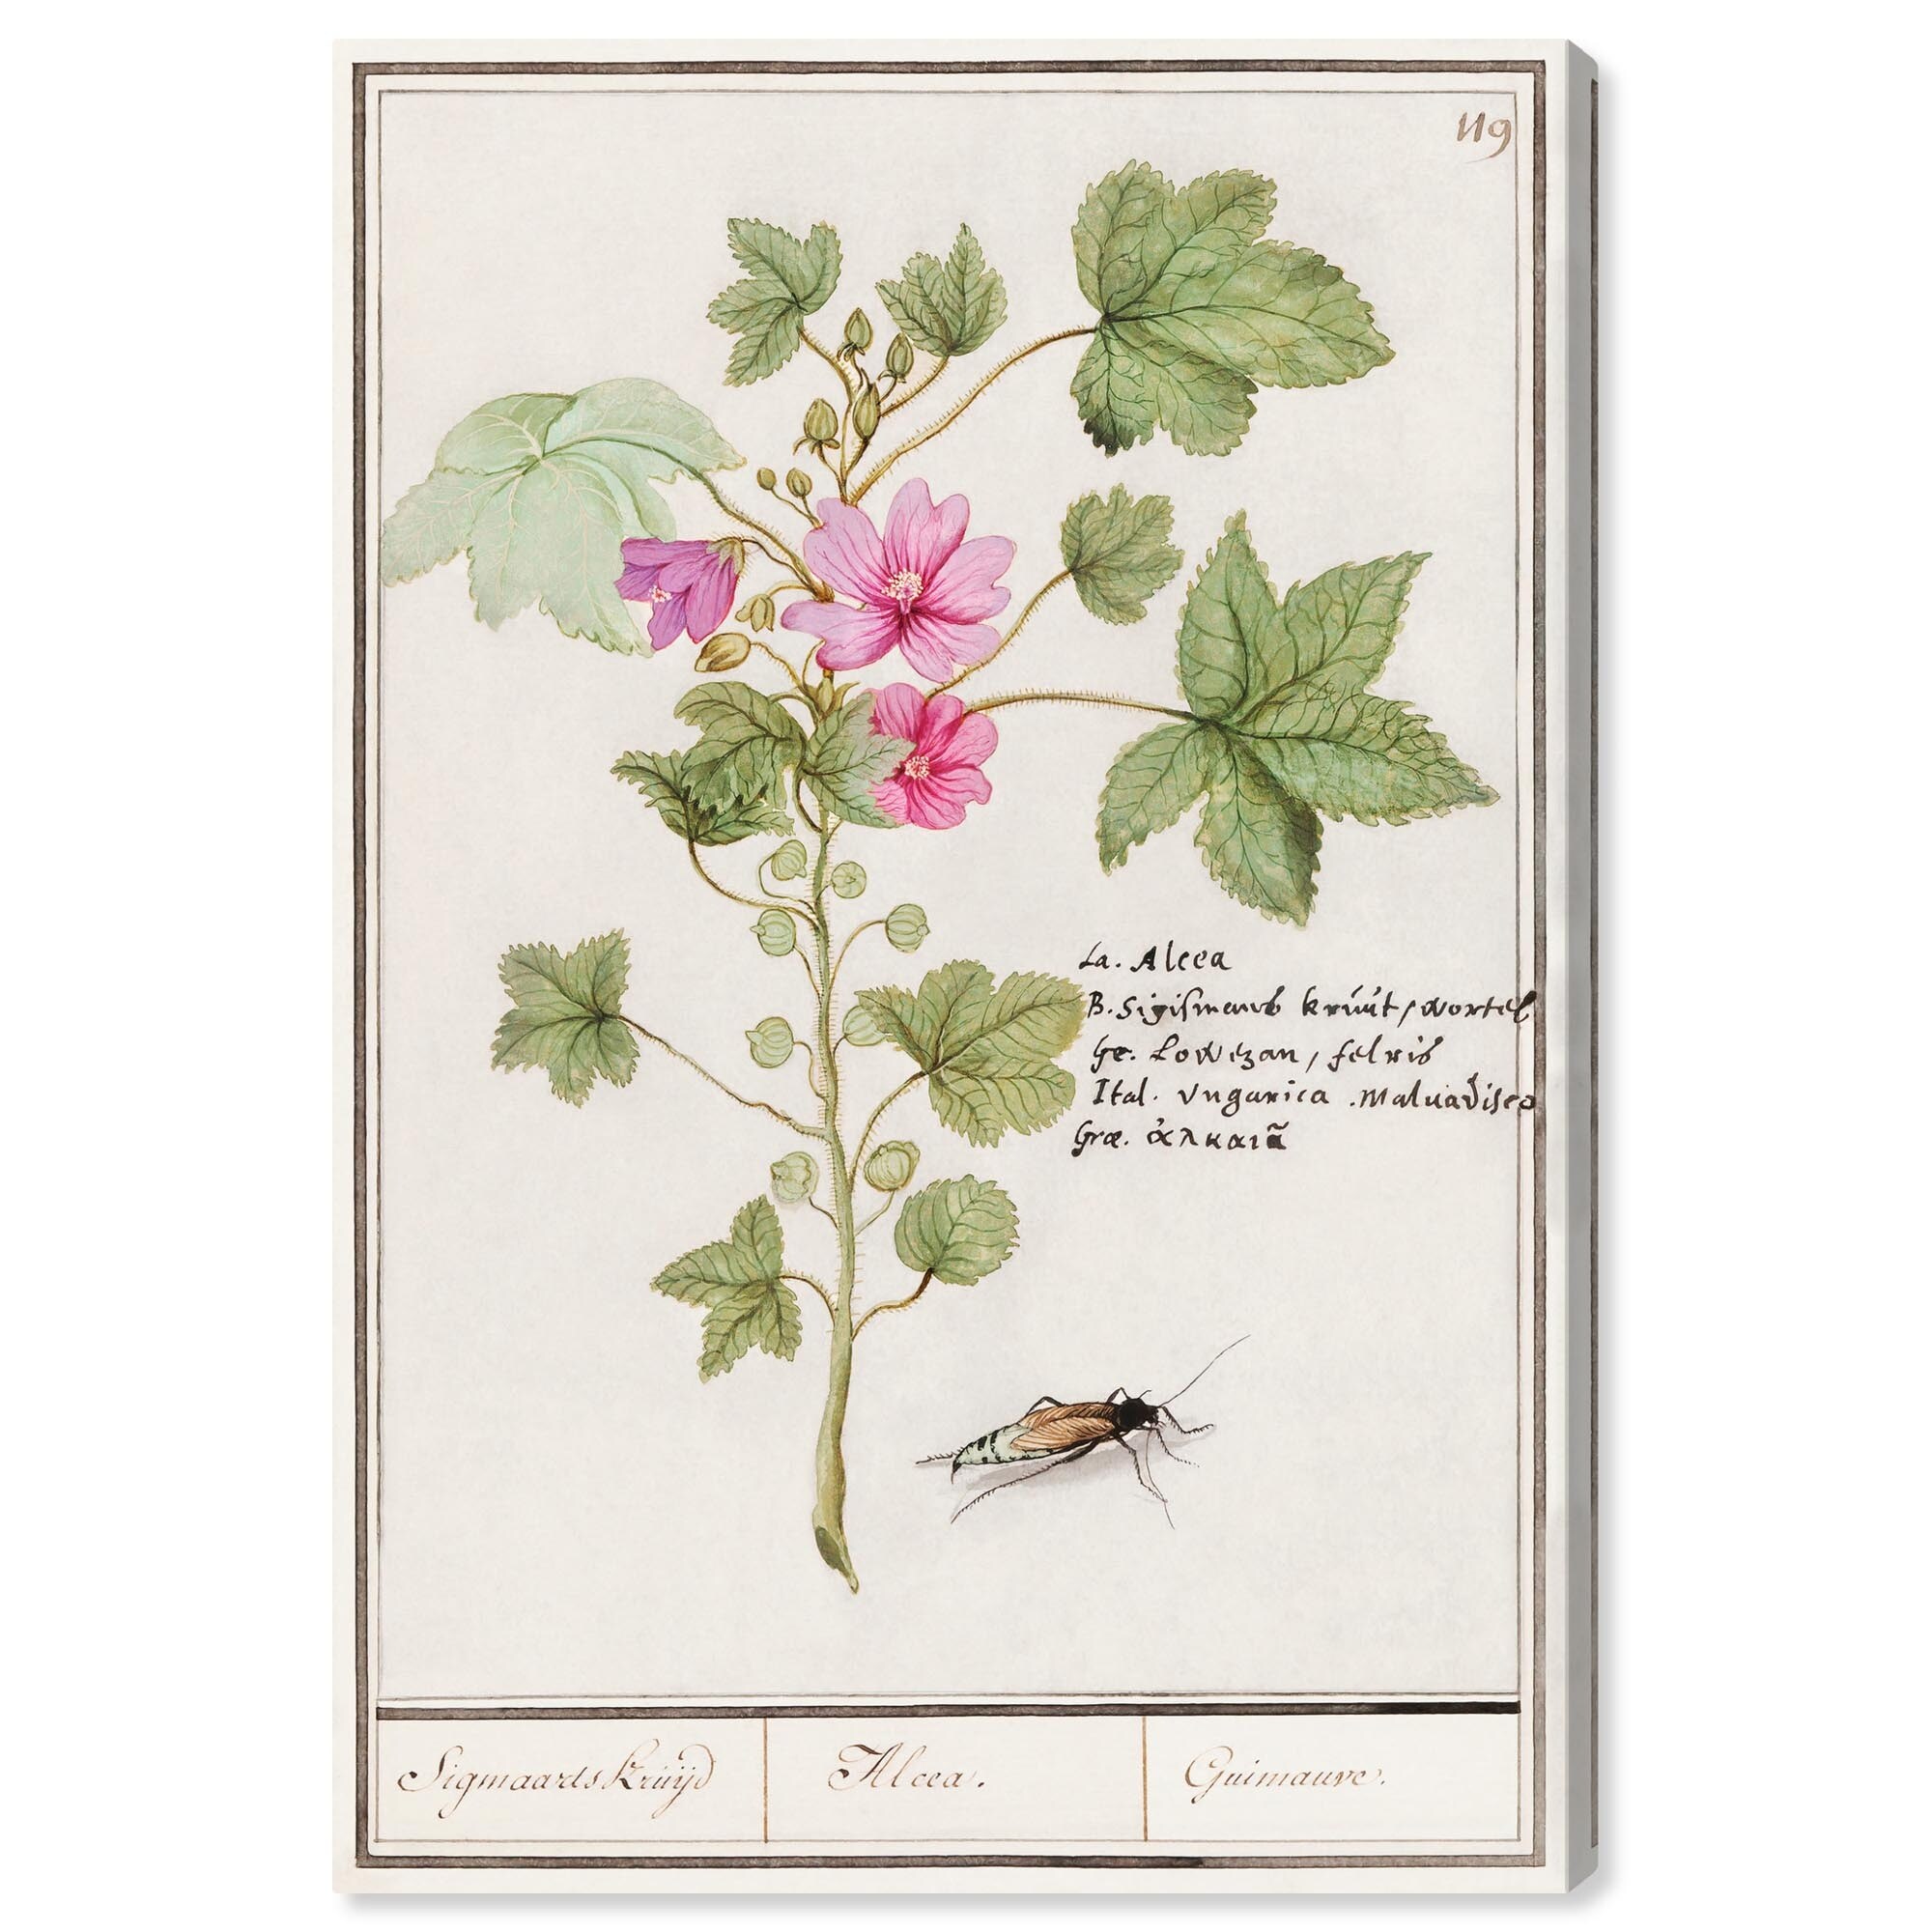 119
La. Alcea
B. Sigismans krúút / Wortel
Ge. Lowezan / felris
Ital. Vngarica Maluavisco
Græ. ἀλκαιã
Sigmaarts Krúijd
Alcea.
Guimauve.